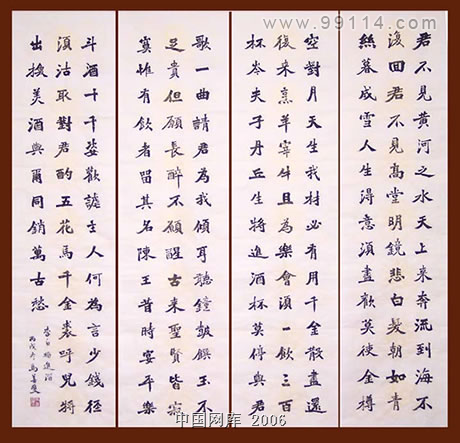 www.99114.com
君不見黄河之水天上來奔流到海不
復回君不見高堂明鏡悲白髮朝如青
絲暮成雪人生得意須盡歡莫使金樽
空對月天生我材必有用千金散盡還
復来烹羊宰牛且為樂會須一飲三百
杯岑夫子丹丘生將進酒杯莫停與君
歌一曲請君為我傾耳聽鐘鼓饌玉不
足貴但願長醉不願醒古来聖賢皆寂
寞惟有飲者留其名陳王昔時宴平樂
斗酒十千恣歡謔主人何為言少錢徑
須沽取對君酌五花馬千金裘呼兒將
出換美酒與爾同銷萬古愁
李白將進酒
丙戌年馬
中国网库 2006